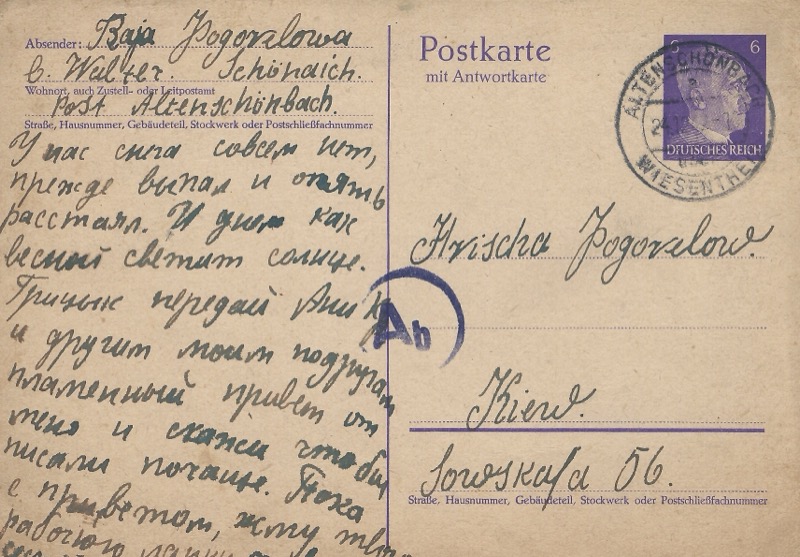 Absender: Baja Pogorelowa
b. Walter. Schöndich.
Wohnort, auch Zustell- oder Leitpostamt
Post Altenschönbach.
Straße, Hausnummer, Gebäudeteil, Stockwerk oder Postschließfachnummer
У нас снега совсем нет,
прежде выпал и опять
расстаял. И днем как
весной светит солнце.
Грицык передай Ани К
и другим моим подругам
пламенный привет от
меня и скажи чтобы
писали почаще. Пока
с приветом, жму твою
рабочую
Postkarte
mit Antwortkarte
6 6
DEUTSCHES REICH
ALTENSCHÖNBACH
WIESENTHEID
Hrischa Pogorelow.
Ab
Kiew.
Sowskaja 56.
Straße, Hausnummer, Gebäudeteil, Stockwerk oder Postschließfachnummer